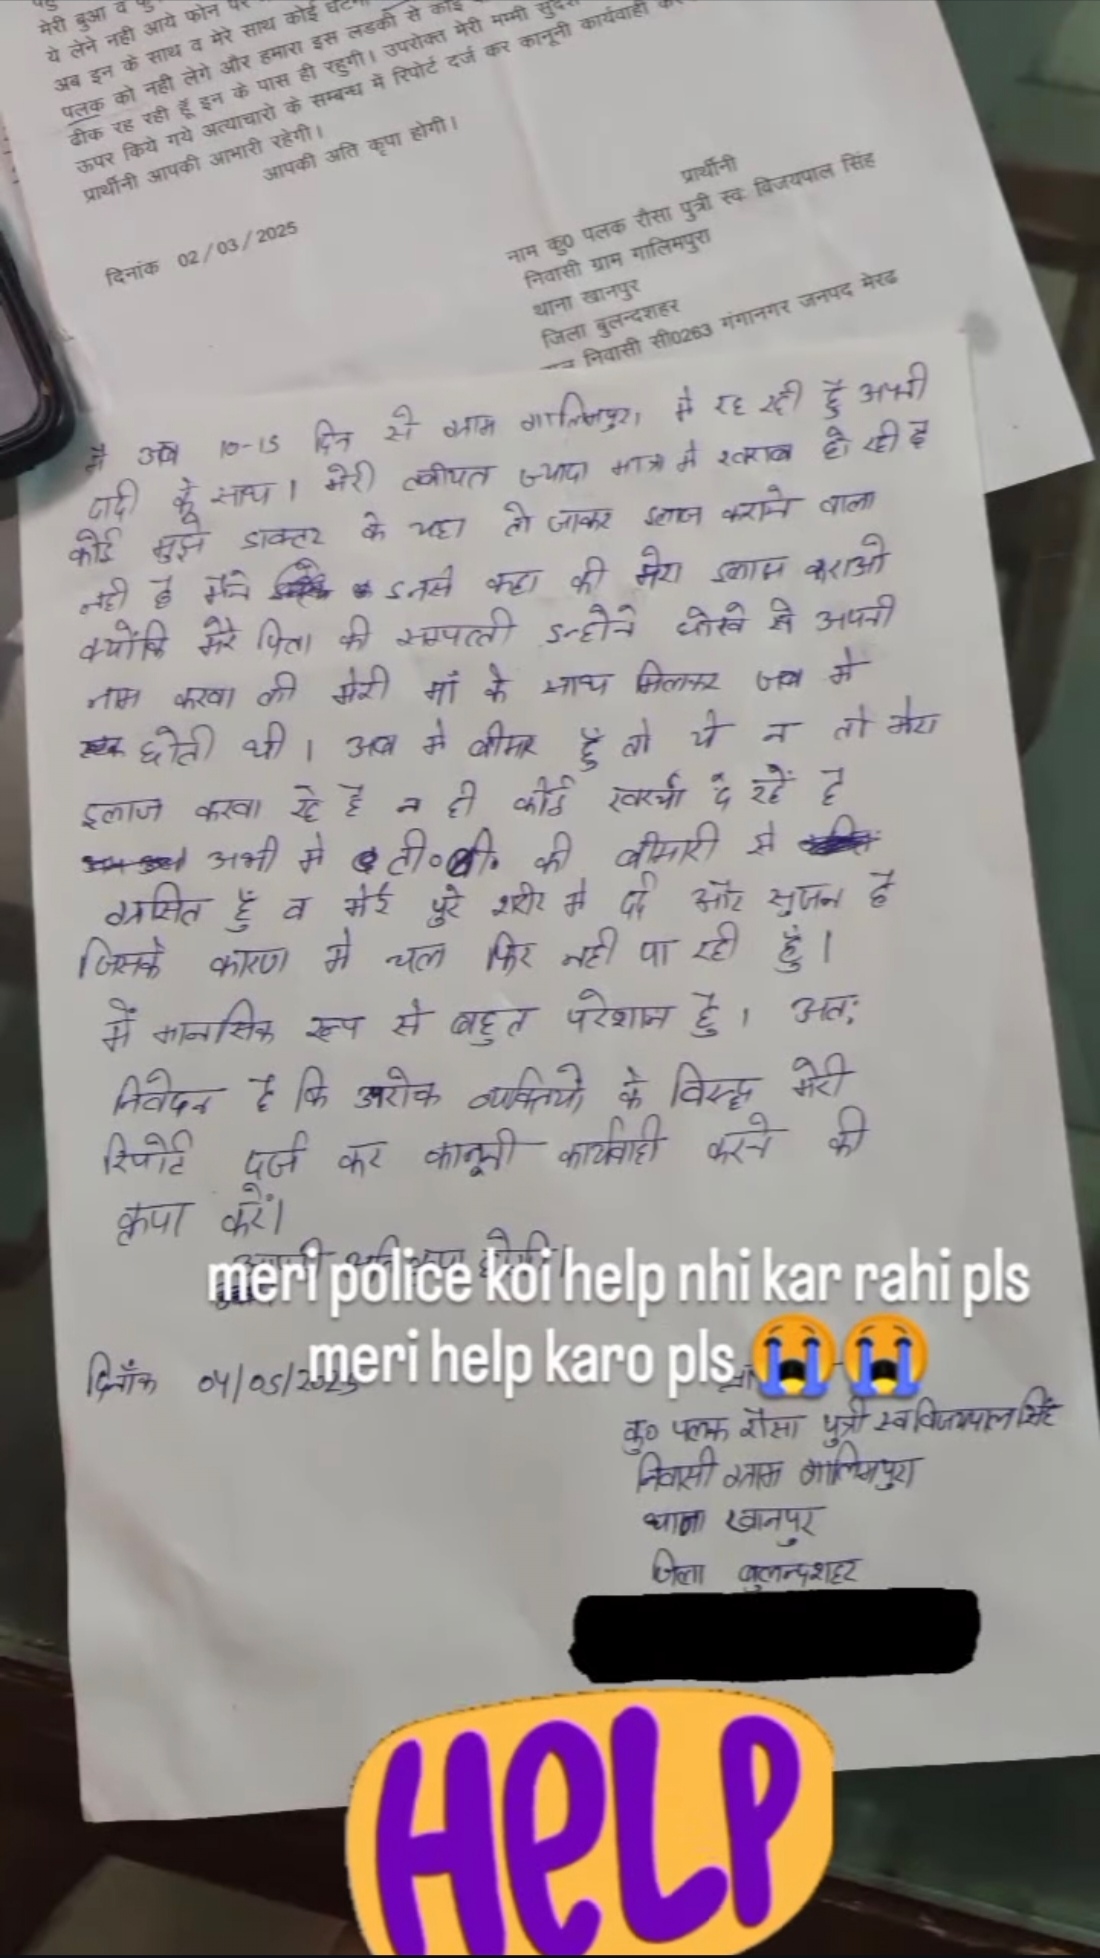 मेरी बुआ व
ये लेने नही आये फोन पर
अब इन के साथ व मेरे साथ कोई घटना
पलक को नही लेगे और हमारा इस लडकी से कोई
ठीक रह रही हूँ इन के पास ही रहुगी। उपरोक्त मेरी मम्मी
ऊपर किये गये अत्याचारो के सम्बन्ध में रिपोर्ट दर्ज कर कानूनी कार्यवाही
प्रार्थीनी आपकी आभारी रहेगी।
आपकी अति कृपा होगी।
प्रार्थीनी
दिनांक 02/03/2025
नाम कु0 पलक रौसा पुत्री स्वः विजयपाल सिंह
निवासी ग्राम गालिमपुरा
थाना खानपुर
जिला बुलन्दशहर
निवासी सी0263 गंगानगर जनपद मेरठ
मै अब 10-15 दिन से ग्राम गालिमपुरा मे रह रही हूँ अपनी
दादी के साथ। मेरी तबीयत ज्यादा मात्रा मे खराब हो रही है
कोई मुझे डाक्टर के यहा ले जाकर इलाज कराने वाला
नही है मैने इनसे कहा की मेरा इलाज कराओ
क्योंकि मेरे पिता की सम्पत्ती इन्होने धोखे से अपनी
नाम करवा ली मेरी माँ के साथ मिलकर जब मे
छोटी थी। अब मे बीमार हूँ तो ये न तो मेरा
इलाज करवा रहे है न ही कोई खर्चा दे रहें है
अभी मे टी०बी० की बीमारी से
ग्रसित हूँ व मेरे पुरे शरीर मे दर्द और सुजन है
जिसके कारण मे चल फिर नही पा रही हूँ।
में मानसिक रूप से बहुत परेशान हूँ। अतः
निवेदन है कि उपरोक्त व्यक्तियो के विरूद्ध मेरी
रिपोर्ट दर्ज कर कानूनी कार्यवाही करने की
कृपा करें।
meri police koi help nhi kar rahi pls
meri help karo pls 😭😭
दिनाँक 04/05/2025
कु० पलक रौसा पुत्री स्व विजयपाल सिंह
निवासी ग्राम गालिमपुरा
थाना खानपुर
जिला बुलन्दशहर
HELP